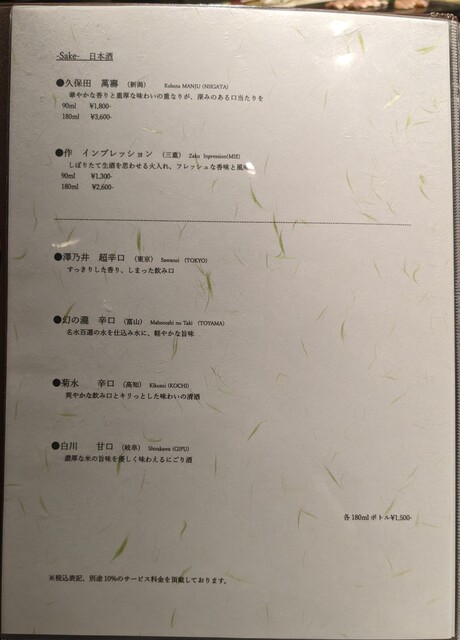 -Sake-　日本酒
●久保田　萬壽　（新潟）　Kubota MANJU (NIIGATA)
華やかな香りと重厚な味わいの重なりが、深みのある口当たりを
90ml　¥1,800-
180ml　¥3,600-
●作　インプレッション　（三重）　Zaku Inpression(MIE)
しぼりたて生酒を思わせる火入れ、フレッシュな香味と風味
90ml　¥1,300-
180ml　¥2,600-
●澤乃井　超辛口　（東京）　Sawanoi　(TOKYO)
すっきりした香り、しまった飲み口
●幻の瀧　辛口　（富山）　Maboroshi no Taki　(TOYAMA)
名水百選の水を仕込み水に、軽やかな旨味
●菊水　辛口　（高知）　Kikusui (KOCHI)
爽やかな飲み口とキリっとした味わいの清酒
●白川　甘口　（岐阜）　Shirakawa (GIFU)
濃厚な米の旨味を優しく味わえるにごり酒
各180ml ボトル¥1,500-
※税込表記、別途10%のサービス料金を頂戴しております。